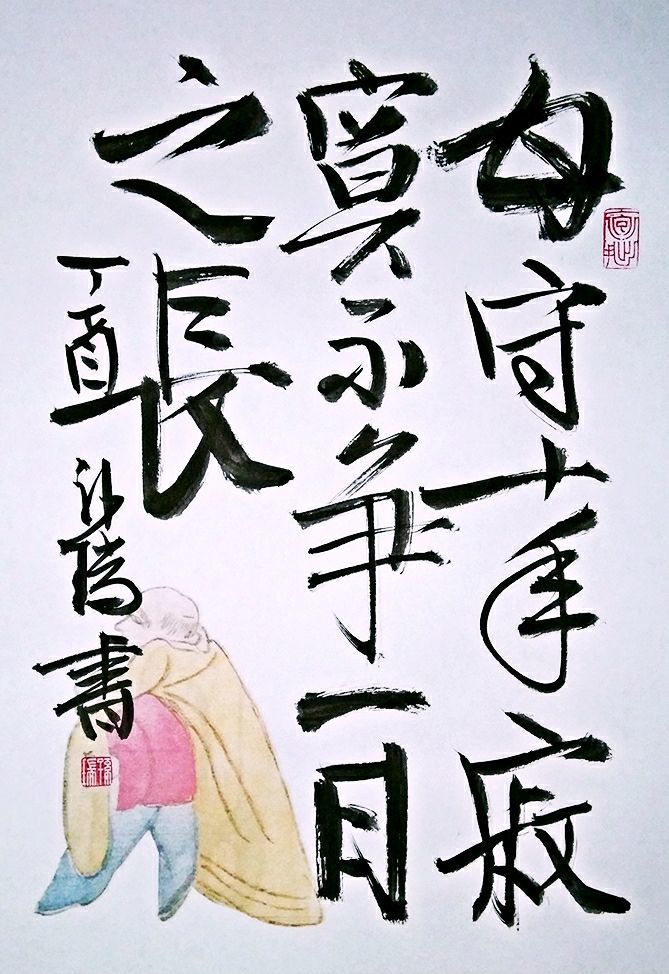 守十年寂
寞不争一日
之長
丁酉
書